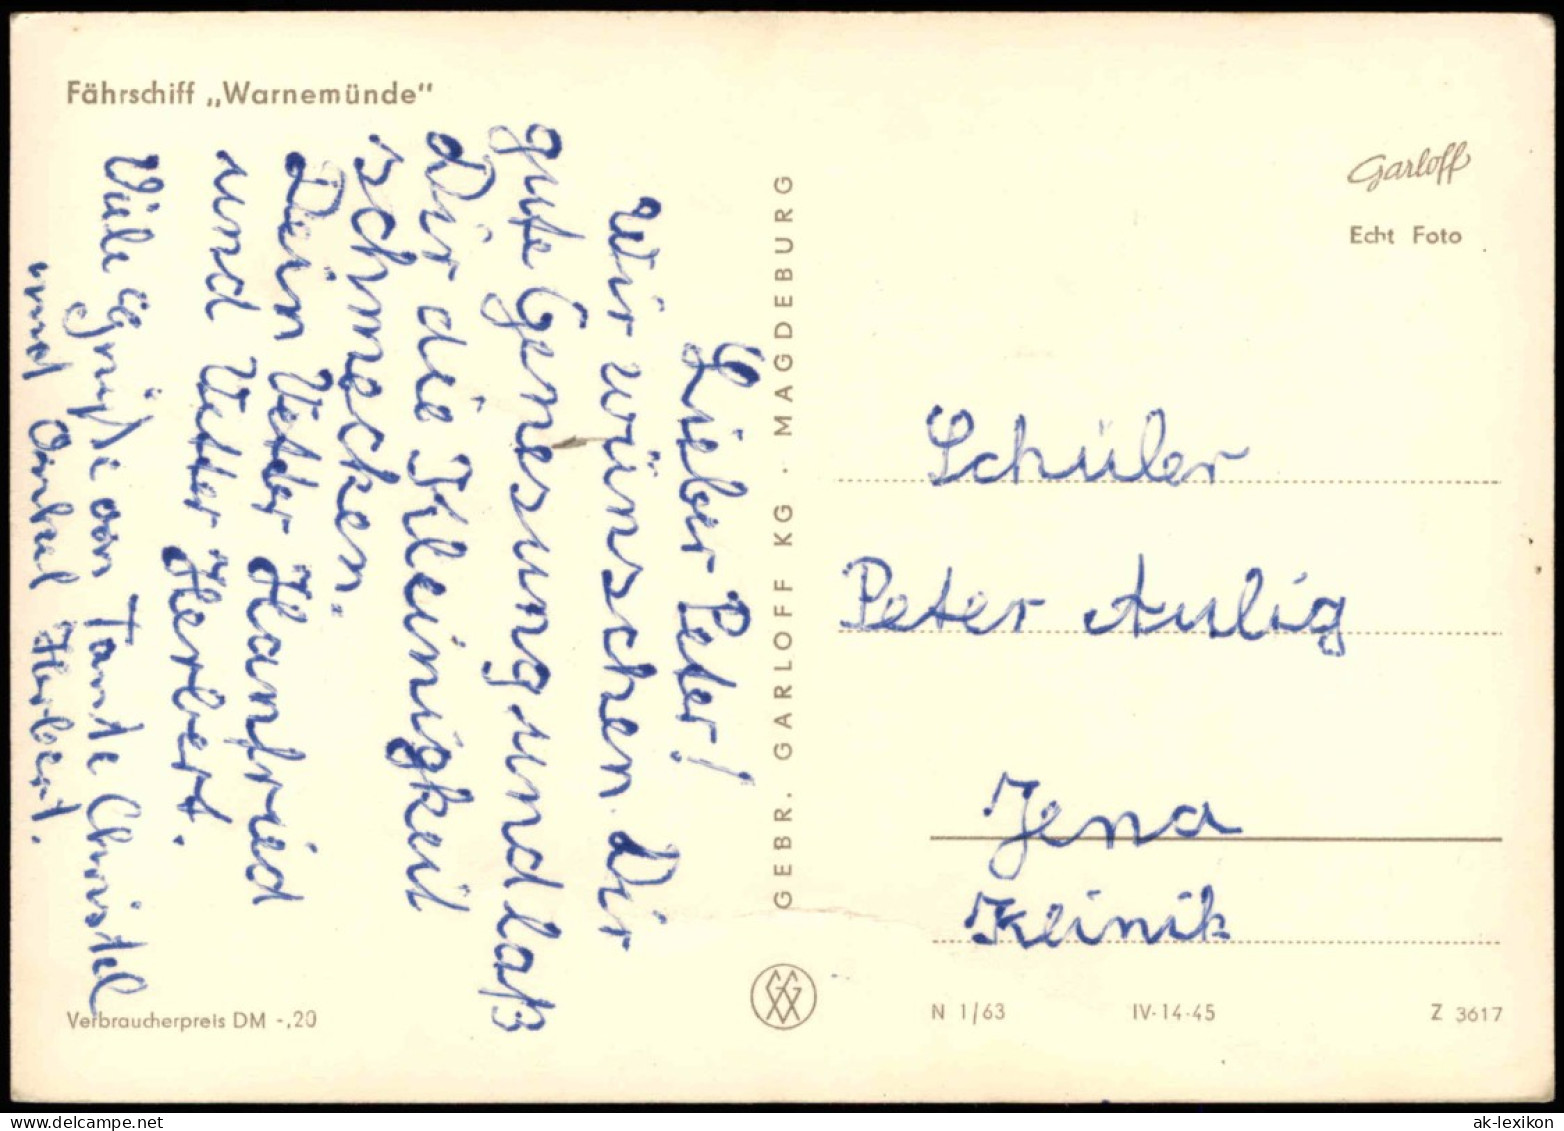 Fährschiff „Warnemünde"
Lieber Peter!
Wir wünschen Dir
gute Genesung und laß
Dir die Kleinigkeit
schmecken.
Dein Veter Hanfried
und Vetter Herbert.
Viele Grüße von Tante Christel
und Onkel Herbert.
Verbraucherpreis DM -,20
GEBR. GARLOFF KG · MAGDEBURG
Garloff
Echt Foto
Schüler
Peter Aulig
Jena
Klinik
N 1/63 IV-14-45 Z 3617
ak-lexikon